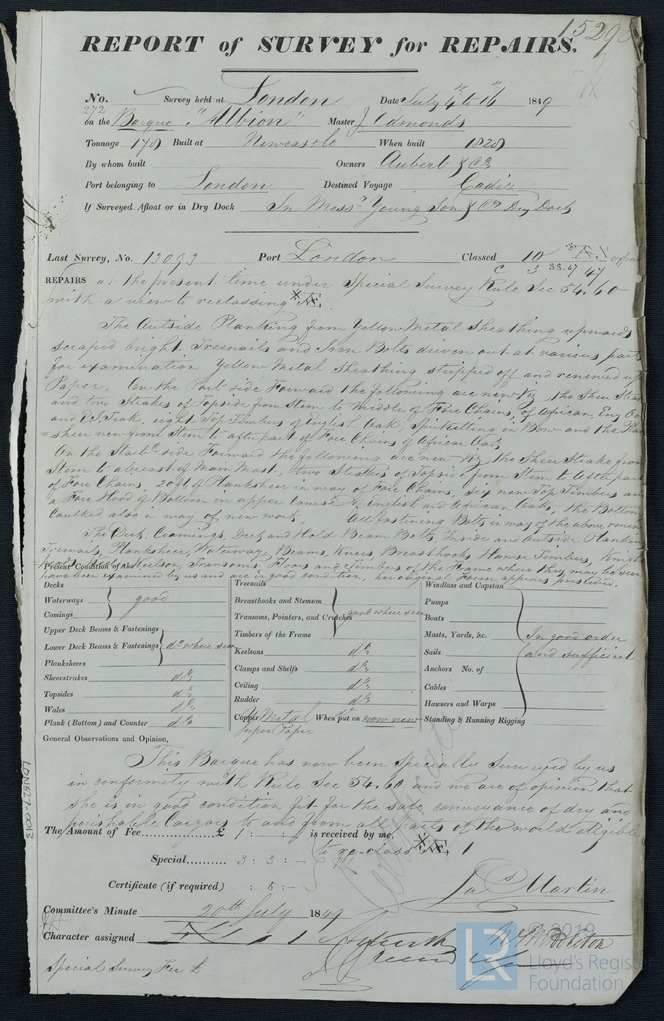 15290
REPORT of SURVEY for REPAIRS.
No. 272 Survey held at London Date July 4th to 16th 1849
on the Barque "Albion" Master J Edmonds
Tonnage 170 Built at Newcastle When built 1828
By whom built Owners Aubert & Co
Port belonging to London Destined Voyage Cadiz
If Surveyed Afloat or in Dry Dock In Messrs Young Son & Co Dry Dock
Last Survey, No. 13093 Port London Classed 10
REPAIRS at the present time under Special Survey Rule Sec 54.60
with a view to reclassing
The Outside Planking from Yellow Metal Sheathing upwards
scraped bright Treenails and Iron Bolts driven out at various parts
for examination Yellow Metal Sheathing stripped off and renewed
Paper. On the Port side Forward the following are new Viz the Sheer Strake
and two Strakes of Topside from Stem to Middle of Fore Chains, of African, Eng Oak
and E.I. Teak, eight Top Timbers of English Oak, Spirketting in Bow and the Plank
sheer new from Stem to after part of Fore Chains of African Oak
On the Starbd side Forward the following are new Viz the Sheer Strake from
Stem to abreast of Main Mast, two Strakes of Topside from Stem to After part
of Fore Chains, 20ft of Planksheer in way of Fore Chains, six new Top Timbers and
a Fore Hood of Bottom in upper course of English and African Oak, the Bottom
Caulked also in way of new work. All fastening Bolts in way of the above renewed
The Deck, Comings, Deck and Hold Beam Bolts, Inside and Outside Planking
Treenails, Planksheer, Waterway, Beams, Knees, Breasthooks, Hawse Timbers, Knight
Keelson, Transoms, Floors and Timbers of the Frame where they may be seen
have been examined by us and are in good condition, her original Form appears preserved.
Present Condition of the
Decks
Waterways
Comings
good
Upper Deck Beams & Fastenings
Lower Deck Beams & Fastenings do where seen
Planksheers
Sheerstrakes do
Topsides do
Wales do
Plank (Bottom) and Counter do
Treenails
Breasthooks and Stemson
Transoms, Pointers, and Crutches good where seen
Timbers of the Frame
Keelsons do
Clamps and Shelfs do
Ceiling do
Rudder do
Copper Y Metal When put on now new
Paper
Windlass and Capstan
Pumps
Boats
Masts, Yards, &c. In good order
Sails and sufficient
Anchors No. of
Cables
Hawsers and Warps
Standing & Running Rigging
General Observations and Opinion,
This Barque has now been Specially Surveyed by us
in conformity with Rule Sec 54.60 and we are of opinion that
she is in good condition fit for the safe conveyance of dry and
perishable Cargoes to and from all parts of the world eligible
to reclass 1
The Amount of Fee £ 1 : - : - is received by me,
Special 3 : 3 : -
Certificate (if required) : 5 : -
Certificate
Jas Martin
Committee's Minute 20th July 1849
Character assigned 1
Special Survey Fee £
LON627-0013
© 2019
LR
Lloyd's Register
Foundation